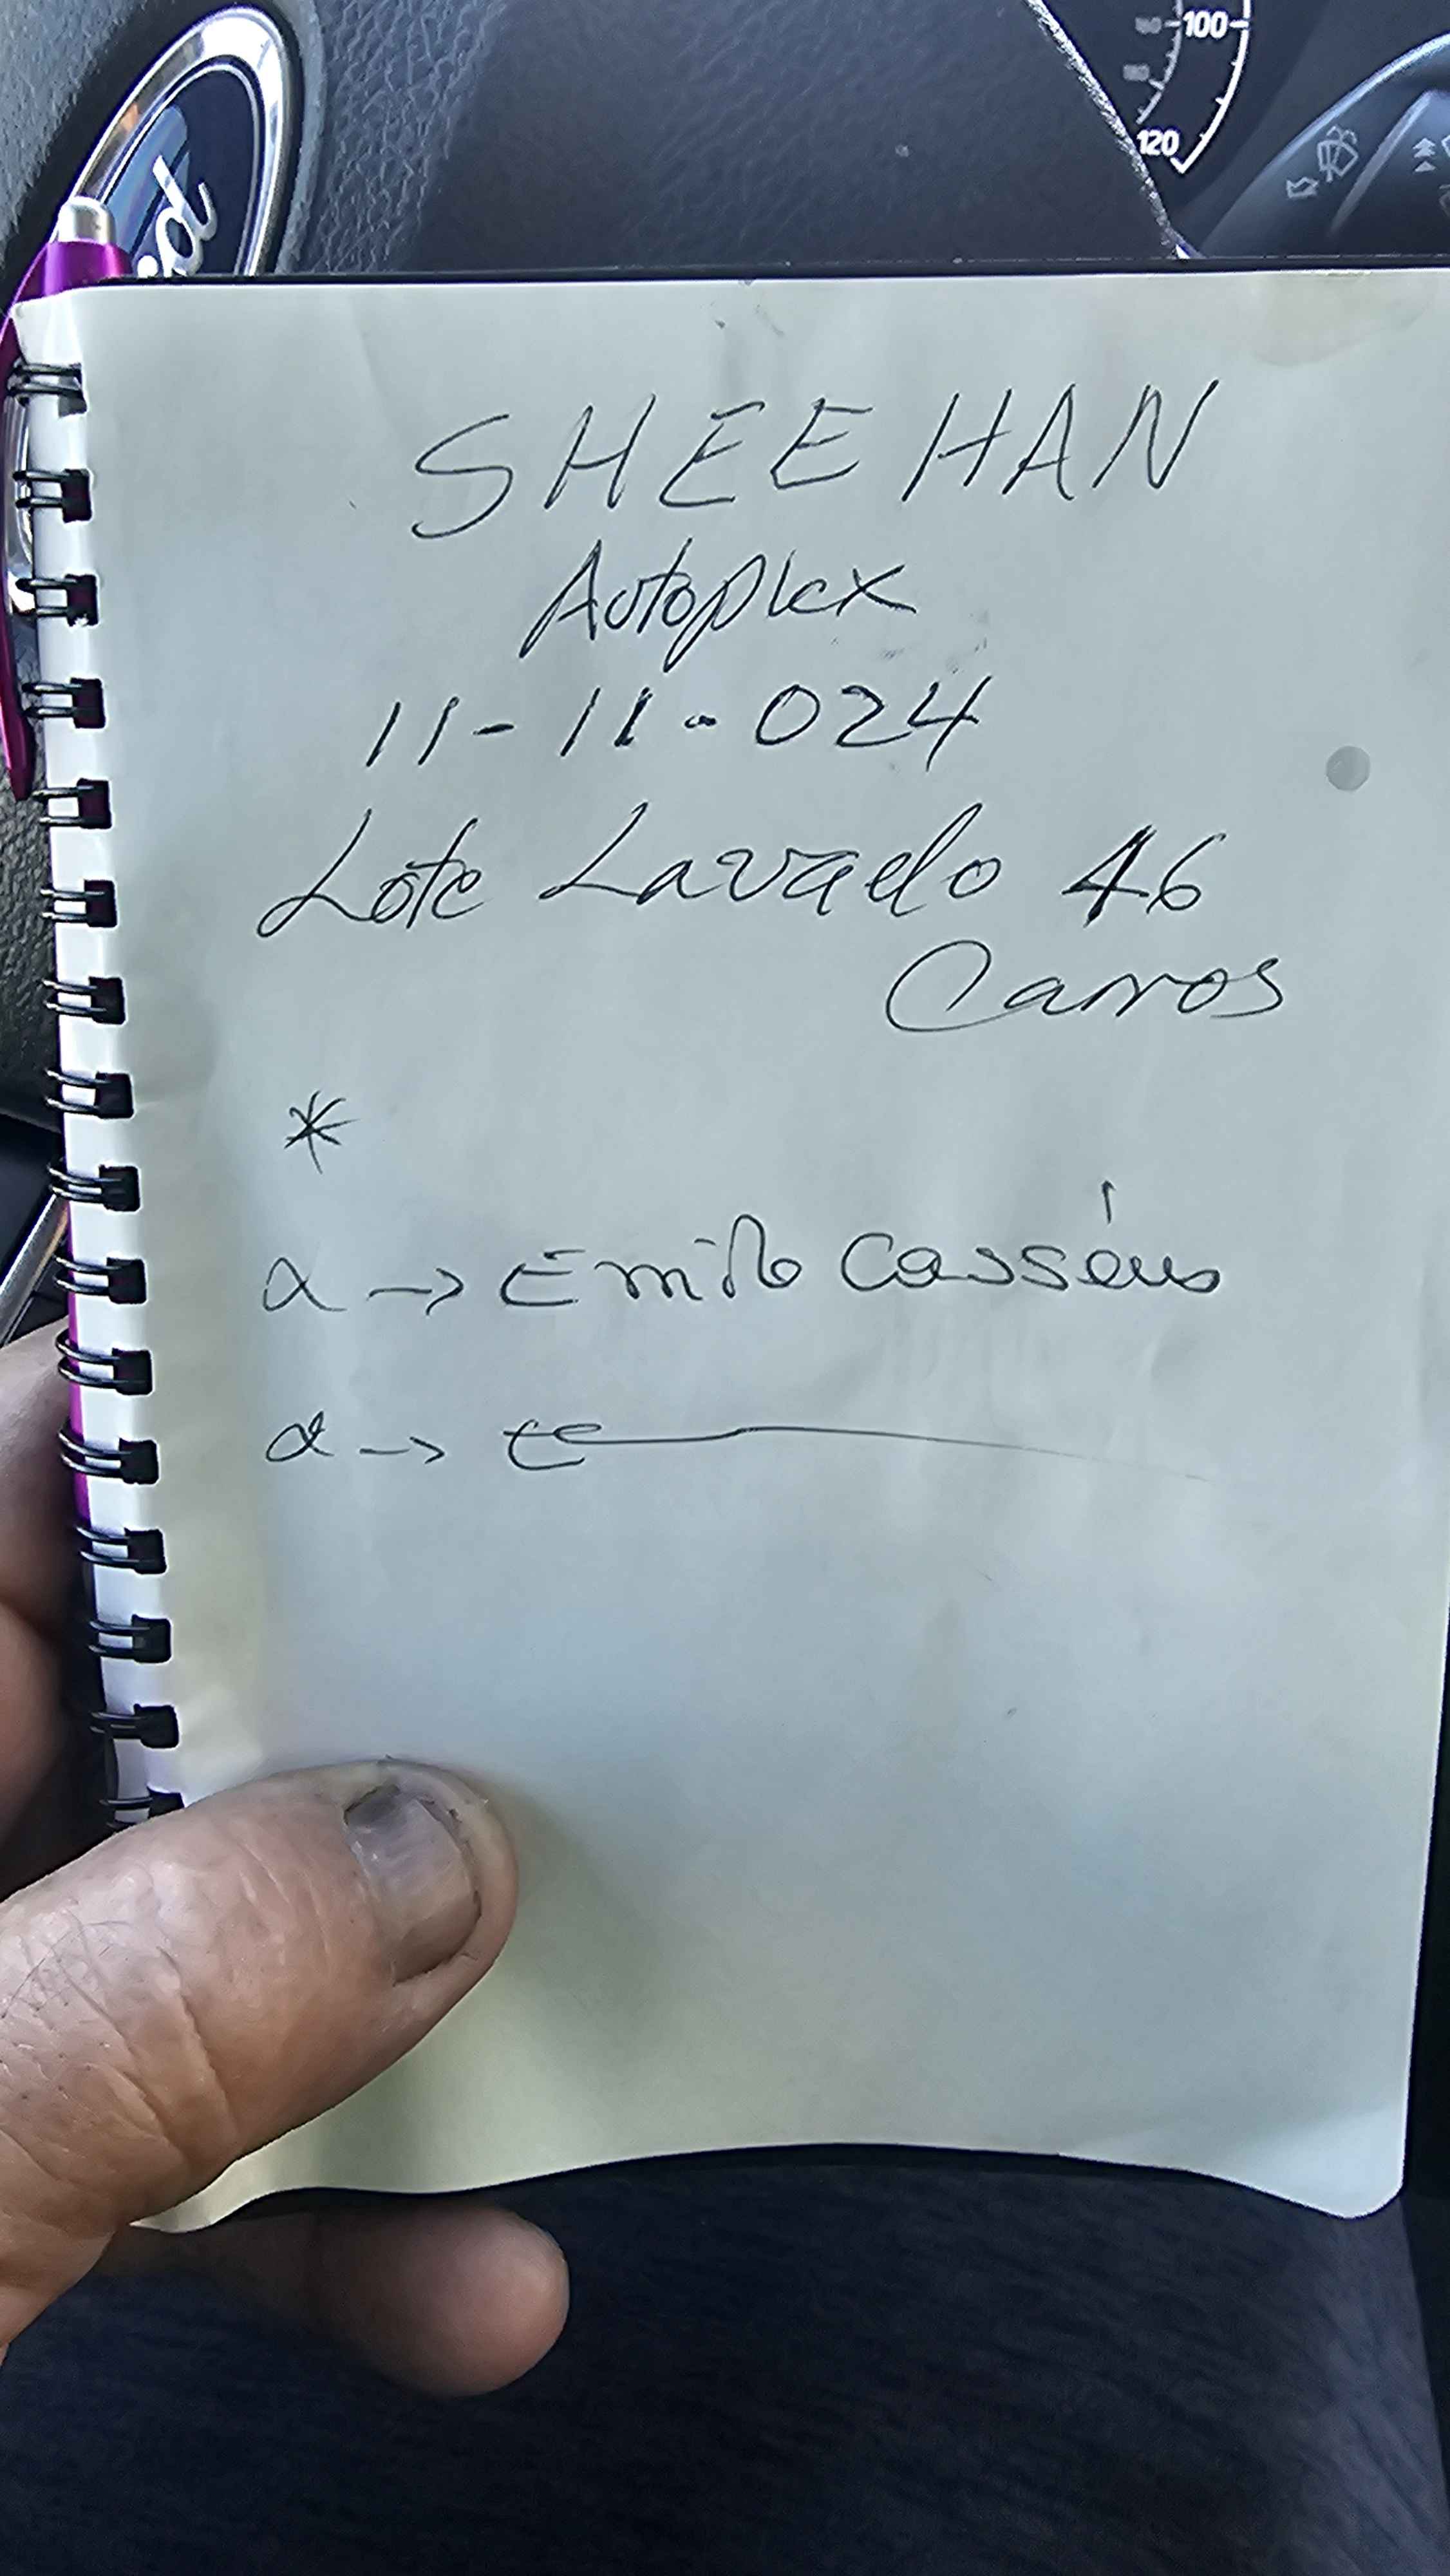 100
120
SHEEHAN
Autoplex
11-11-024
Lote Lavado 46
Carros
*
α → Emile Casséus
α →